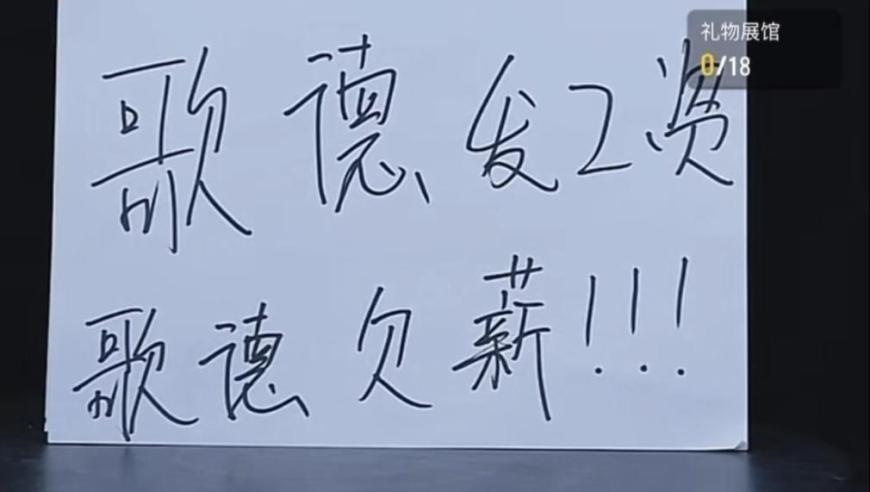 礼物展馆
0/18
歌德发工资
歌德欠薪!!!